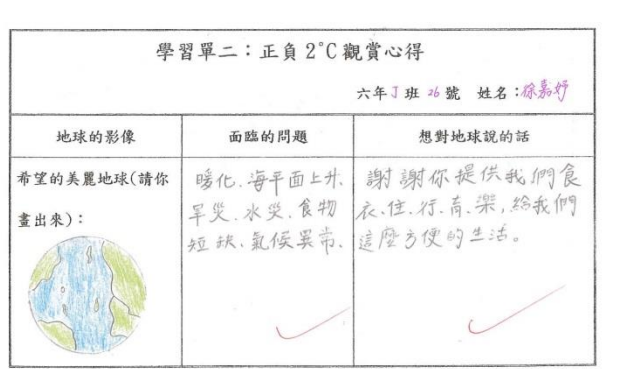 學習單二：正負2°C觀賞心得
六年J班 26號 姓名：徐嘉妤
地球的影像
面臨的問題
想對地球說的話
希望的美麗地球(請你
畫出來)：
暖化、海平面上升、
旱災、水災、食物
短缺、氣候異常、
謝謝你提供我們食
衣、住、行、育、樂,給我們
這麼方便的生活。